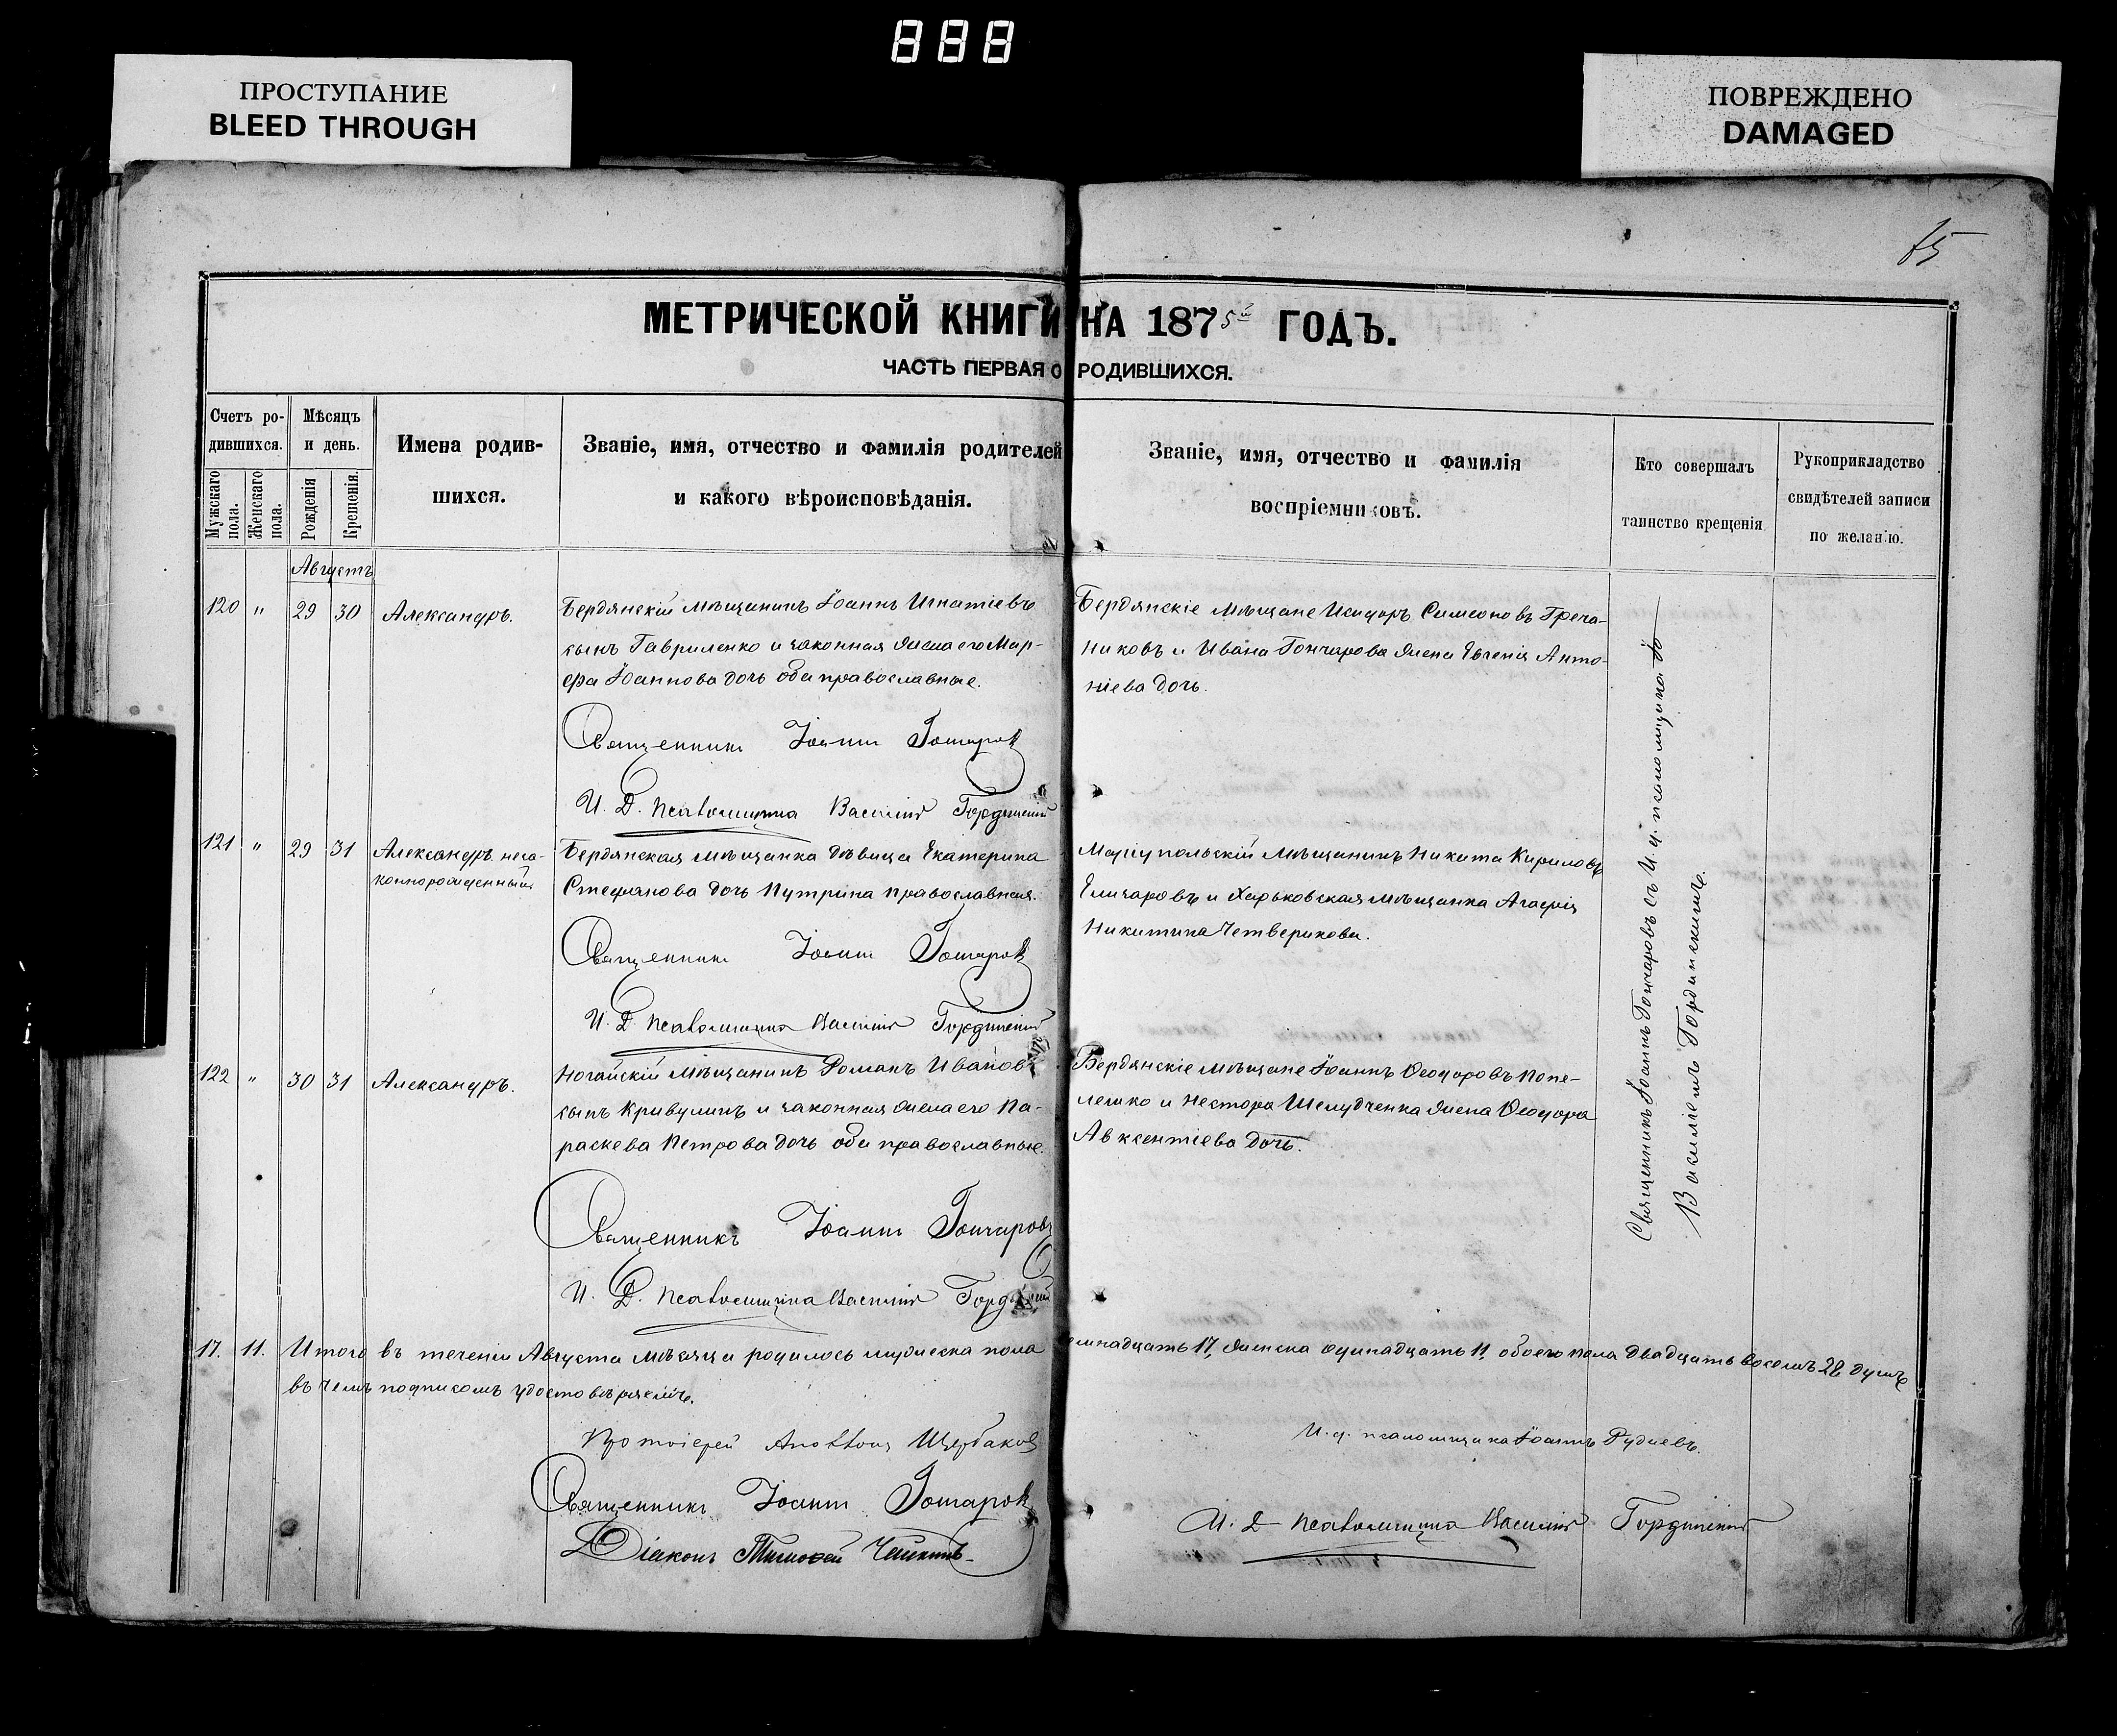 888
ПРОСТУПАНИЕ
BLEED THROUGH
ПОВРЕЖДЕНО
DAMAGED
МЕТРИЧЕСКОЙ КНИГИ НА 1875й ГОДЪ.
ЧАСТЬ ПЕРВАЯ О РОДИВШИХСЯ.
Счетъ ро-
дившихся.
Мужскаго пола.
Женскаго пола.
Мѣсяцъ
и день.
Рожденія
Крещенія.
Имена родив-
шихся.
Званіе, имя, отчество и фамилія родителей
и какого вѣроисповѣданія.
Званіе, имя, отчество и фамилія
воспріемниковъ.
Кто совершалъ
таинство крещенія
Рукоприкладство
свидѣтелей записи
по желанію.
Августъ
120 " 29 30 Александръ.
Бердянскій мѣщанинъ Іоаннъ Игнатіевъ
сынъ Гавриленко и законная жена его Мар-
фа Іоаннова дочь оба православные.
Священникъ Іоаннъ Гончаровъ
И. Д. Псаломщика Василій Гординскій
Бердянскіе мѣщане Исидоръ Симеоновъ Греча-
никовъ и Ивана Гончарова жена Евгенія Анто-
ніева дочь.
121 " 29 31 Александръ неза-
коннорожденный
Бердянская мѣщанка дѣвица Екатерина
Стефанова дочь Путрина православная.
Священникъ Іоаннъ Гончаровъ
И. Д. Псаломщика Василій Гординскій
Маріупольскій мѣщанинъ Никита Кириловъ
и Харьковская мѣщанка Агафія
Никитина Четверикова.
122 " 30 31 Александръ.
Ногайскій мѣщанинъ Романъ Ивановъ
сынъ Кривулинъ и законная жена его Па-
раскева Петрова дочь оба православные.
Священникъ Іоаннъ Гончаровъ
И. Д. Псаломщика Василій Гординскій
Бердянскіе мѣщане Іоаннъ Ѳеодоровъ Попе-
лешко и Нестора Шелудченка жена Ѳеодора
Авксентіева дочь.
Священникъ Іоаннъ Гончаровъ съ И. д. псаломщика
Василіемъ Гординскимъ.
17. 11. Итого въ теченіи Августа мѣсяца родилось мужеска пола семнадцать 17, женска одинадцать 11, обоего пола двадцать восемь 28 душъ
въ чемъ подписомъ удостовѣряемъ.
Протоіерей Щербаковъ
Священникъ Іоаннъ Гончаровъ
Діаконъ Тимофей
И. д. псаломщика Іоаннъ Рудневъ.
И. Д. Псаломщика Василій Гординскій